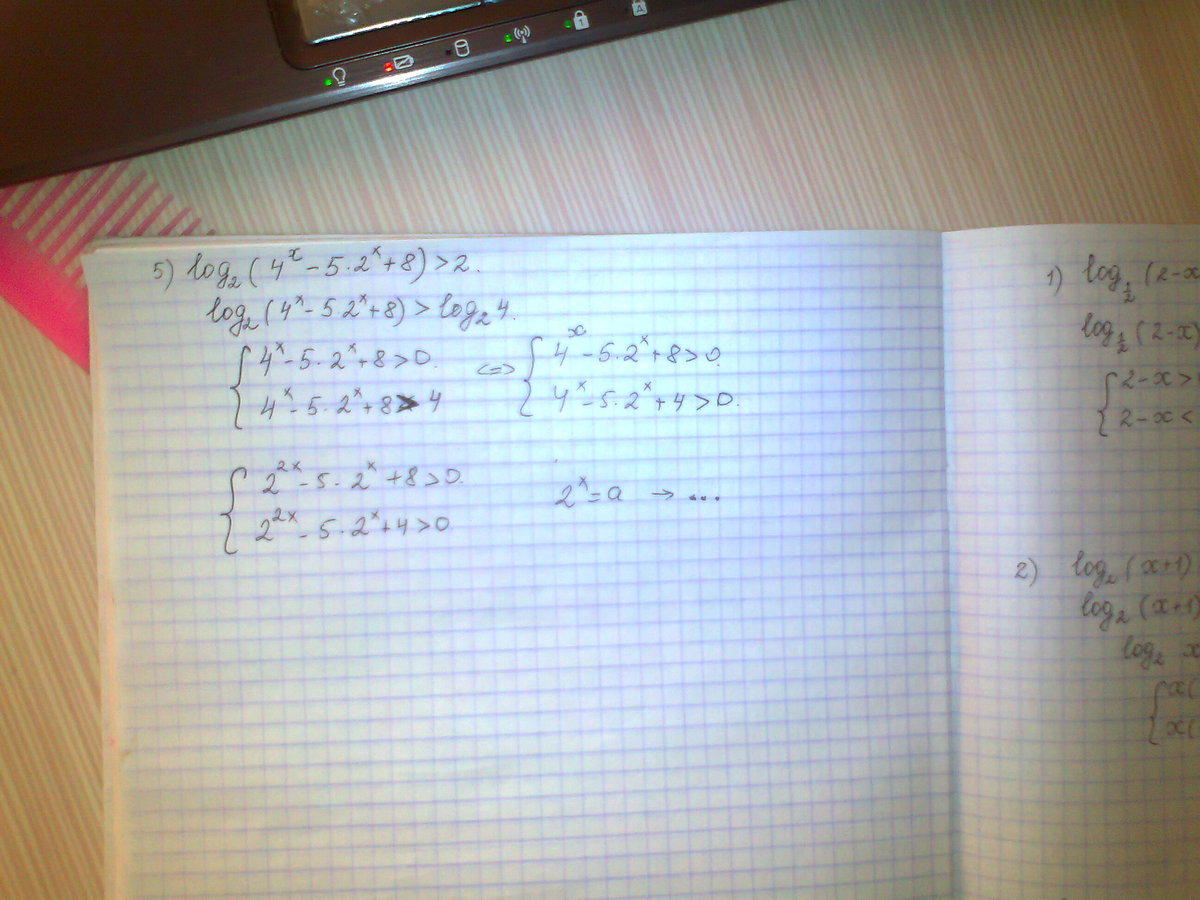 5) log₂(4ˣ-5·2ˣ+8)>2.
log₂(4ˣ-5 2ˣ+8)>log₂4.
{4ˣ-5·2ˣ+8>0. <=> {4ˣ-5·2ˣ+8>0.
4ˣ-5·2ˣ+8>4 4ˣ-5·2ˣ+4>0.
{2²ˣ-5·2ˣ+8>0.
2²ˣ-5·2ˣ+4>0
2ˣ=a → ...
1) log½(2-x
log½(2-x)
{2-x>
2-x<
2) log₂(x+1)
log₂(x+1)
log₂ x
{x(
x(